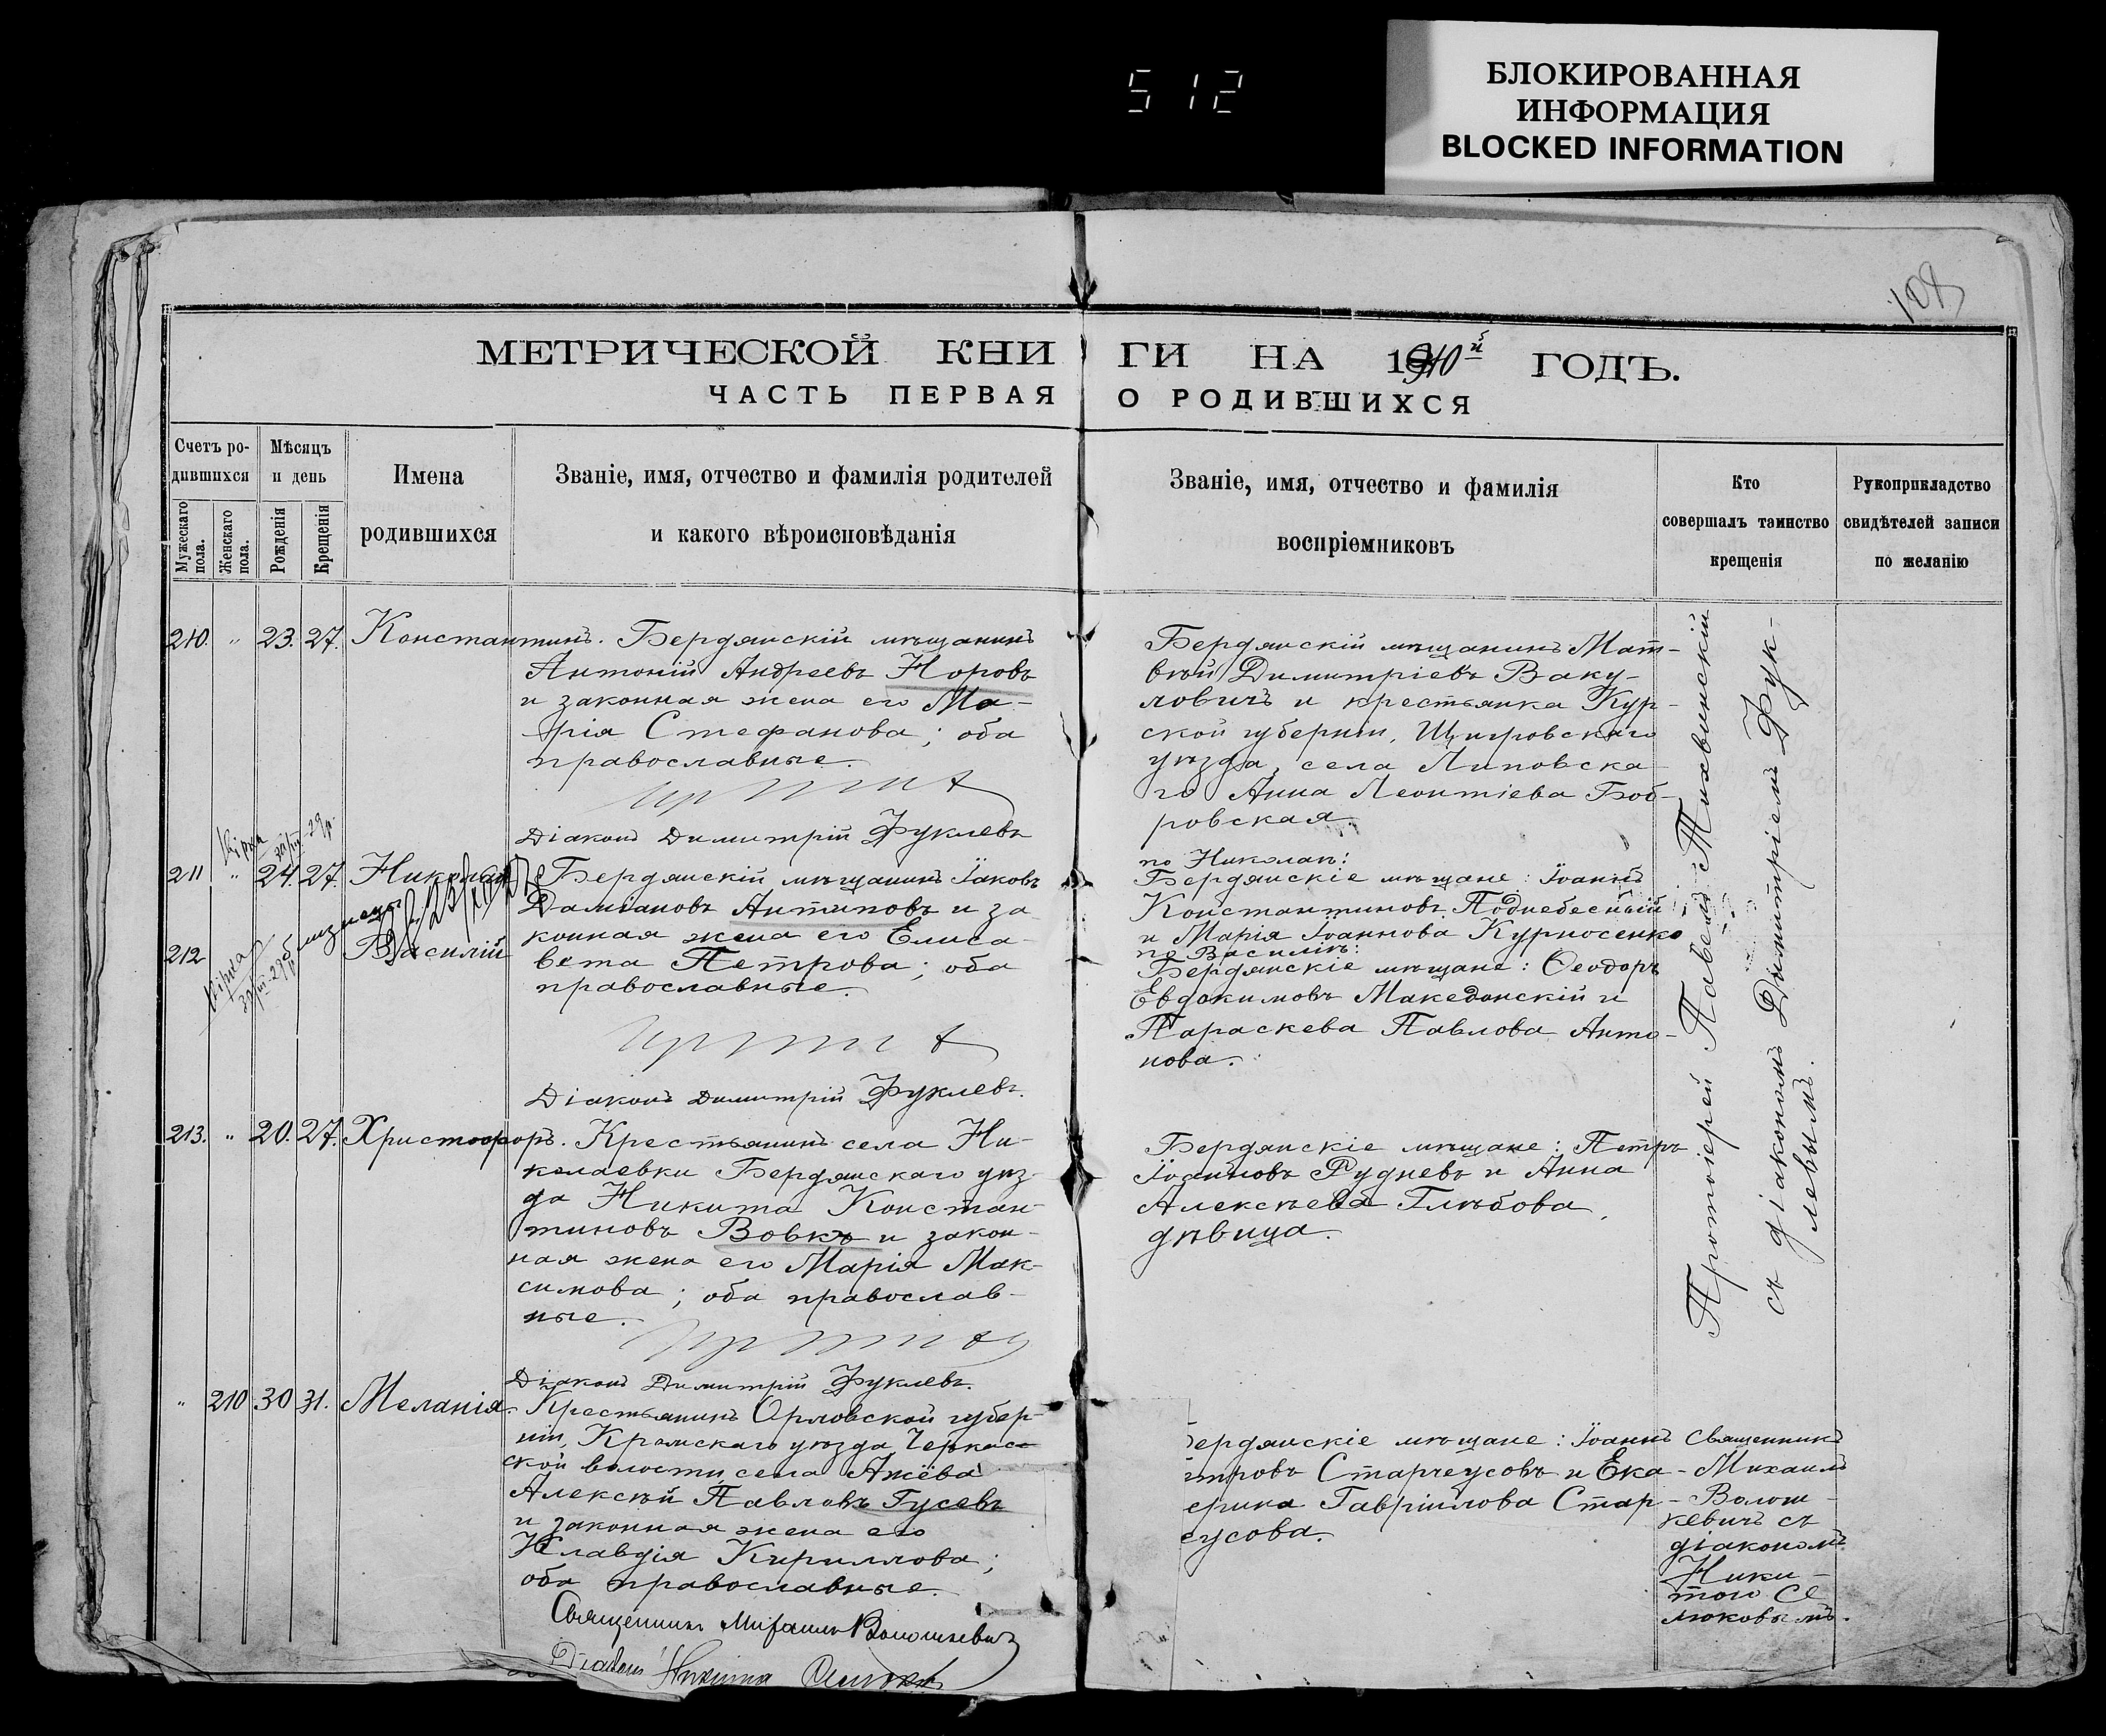 512
БЛОКИРОВАННАЯ
ИНФОРМАЦИЯ
BLOCKED INFORMATION
108
МЕТРИЧЕСКОЙ КНИГИ НА 1910й ГОДЪ.
ЧАСТЬ ПЕРВАЯ О РОДИВШИХСЯ
Счетъ ро-
дившихся
Мужескаго пола.
Женскаго пола.
Мѣсяцъ
и день
Рожденія
Крещенія
Имена
родившихся
Званіе, имя, отчество и фамилія родителей
и какого вѣроисповѣданія
Званіе, имя, отчество и фамилія
воспріемниковъ
Кто
совершалъ таинство
крещенія
Рукоприкладство
свидѣтелей записи
по желанію
210. " 23. 27. Константинъ. Бердянскій мѣщанинъ
Антоній Андреевъ Норовъ
и законная жена его Ма-
рія Стефанова; оба
православные.
Діаконъ Димитрій Фуклевъ
Бердянскій мѣщанинъ Мат-
вѣй Димитріевъ Ваку-
ловичъ и крестьянка Кур-
ской губерніи, Щигровскаго
уѣзда, села Липовска-
го Анна Леонтіева Боб-
ровская
211 " 24. 27. Николай Бердянскій мѣщанинъ Іаковъ
Даміановъ Антиповъ и за-
212 близнецы Василій конная жена его Елиса-
вета Петрова; оба
православные.
Діаконъ Димитрій Фуклевъ.
по Николаѣ:
Бердянскіе мѣщане: Іоаннъ
Константиновъ Поднебесный
и Марія Іоаннова Курносенко
по Василіѣ:
Бердянскіе мѣщане: Ѳеодоръ
Евдокимовъ Македонскій и
Параскева Павлова Анто-
нова.
213. " 20. 27. Христофоръ. Крестьянинъ села Ни-
колаевки Бердянскаго уѣз-
да Никита Констан-
тиновъ Вовкъ и закон-
ная жена его Марія Мак-
симова; оба православ-
ные.
Діаконъ Димитрій Фуклевъ.
Бердянскіе мѣщане: Петръ
Іоанновъ Рудневъ и Анна
Алексѣева Глѣбова,
дѣвица.
Протоіерей Павелъ Тихвинскій
съ діакономъ Димитріемъ Фук-
левымъ.
" 210 30 31. Меланія. Крестьянинъ Орловской губер-
ніи, Кромскаго уѣзда, Черкас-
ской волости, села Ажёва
Алексѣй Павловъ Гусевъ
и законная жена его
Клавдія Кириллова;
оба православные.
Священникъ Михаилъ Волошкевичъ
Діаконъ Никита
ердянскіе мѣщане: Іоаннъ
тровъ Старчеусовъ и Ека-
ерина Гавріилова Стар-
еусова.
Священникъ
Михаилъ
Волош-
кевичъ съ
діакономъ
Ники-
тою Се
люковымъ.